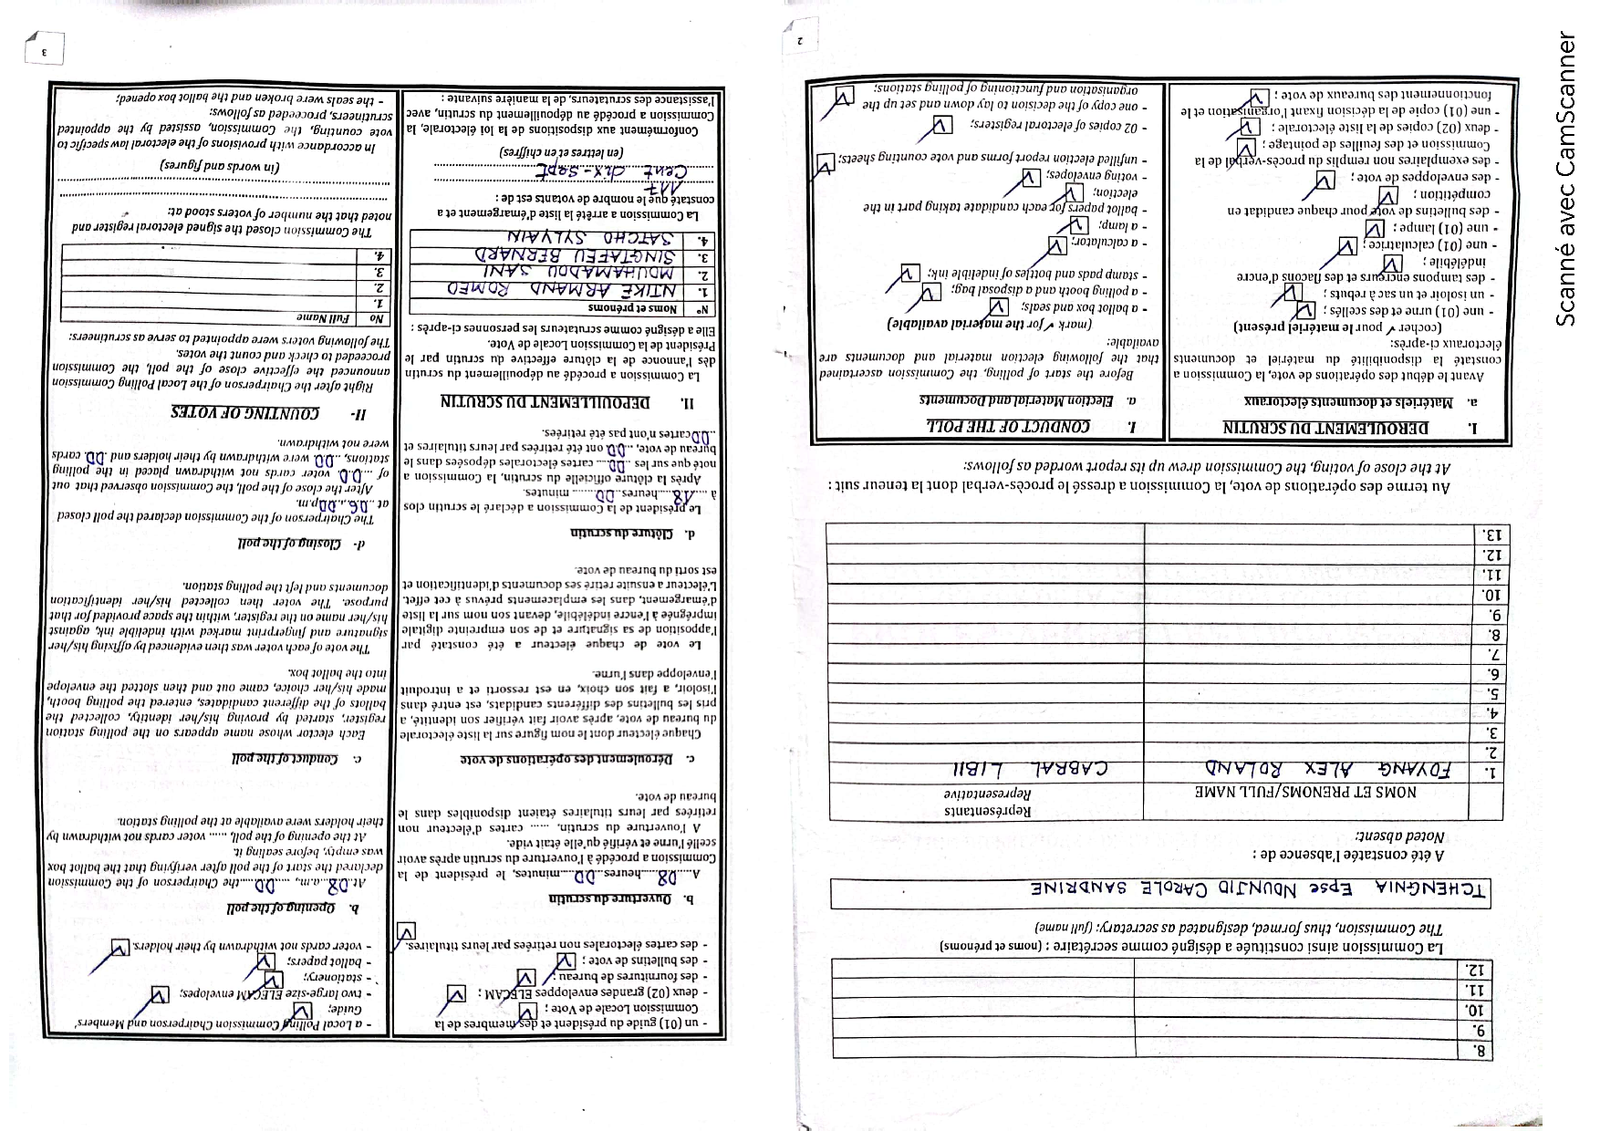 8.
9.
10.
11.
12.
La Commission ainsi constituée a désigné comme secrétaire : (noms et prénoms)
The Commission, thus formed, designated as secretary: (full name)
TCHENGNIA Epse NOUNJIO CAROLE SANDRINE
A été constatée l'absence de :
Noted absent:
NOMS ET PRENOMS/FULL NAME
Représentants
Representative
1. FOYANG ALEX ROLAND CABRAL LIBII
2.
3.
4.
5.
6.
7.
8.
9.
10.
11.
12.
13.
Au terme des opérations de vote, la Commission a dressé le procès-verbal dont la teneur suit :
At the close of voting, the Commission drew up its report worded as follows:
I. DEROULEMENT DU SCRUTIN
a. Matériels et documents électoraux
Avant le début des opérations de vote, la Commission a
constaté la disponibilité du matériel et documents
électoraux ci-après:
(cocher ✓ pour le matériel présent)
- une (01) urne et des scellés ;
- un isoloir et un sac à rebuts ;
- des tampons encreurs et des flacons d'encre
indélébile ;
- une (01) calculatrice ;
- une (01) lampe ;
- des bulletins de vote pour chaque candidat en
compétition ;
- des enveloppes de vote ;
- des exemplaires non remplis du procès-verbal de la
Commission et des feuilles de pointage ;
- deux (02) copies de la liste électorale ;
- une (01) copie de la décision fixant l'organisation et le
fonctionnement des bureaux de vote ;
I. CONDUCT OF THE POLL
a. Election Material and Documents
Before the start of polling, the Commission ascertained
that the following election material and documents are
available:
(mark ✓ for the material available)
- a ballot box and seals;
- a polling booth and a disposal bag;
- stamp pads and bottles of indelible ink;
- a calculator;
- a lamp;
- ballot papers for each candidate taking part in the
election;
- voting envelopes;
- unfilled election report forms and vote counting sheets;
- 02 copies of electoral registers;
- one copy of the decision to lay down and set up the
organisation and functioning of polling stations;
2
- un (01) guide du président et des membres de la
Commission Locale de Vote ;
- deux (02) grandes enveloppes ELECAM ;
- des fournitures de bureau ;
- des bulletins de vote ;
- des cartes électorales non retirées par leurs titulaires.
b. Ouverture du scrutin
A...08...heures...00...minutes, le président de la
Commission a procédé à l'ouverture du scrutin après avoir
scellé l'urne et vérifié qu'elle était vide.
A l'ouverture du scrutin, ...... cartes d'électeur non
retirées par leurs titulaires étaient disponibles dans le
bureau de vote.
c. Déroulement des opérations de vote
Chaque électeur dont le nom figure sur la liste électorale
du bureau de vote, après avoir fait vérifier son identité, a
pris les bulletins des différents candidats, est entré dans
l'isoloir, a fait son choix, en est ressorti et a introduit
l'enveloppe dans l'urne.
Le vote de chaque électeur a été constaté par
l'apposition de sa signature et de son empreinte digitale
imprégnée à l'encre indélébile, devant son nom sur la liste
d'émargement, dans les emplacements prévus à cet effet.
L'électeur a ensuite retiré ses documents d'identification et
est sorti du bureau de vote.
d. Clôture du scrutin
Le président de la Commission a déclaré le scrutin clos
à ...18...heures...00... minutes.
Après la clôture officielle du scrutin, la Commission a
noté que sur les ...00... cartes électorales déposées dans le
bureau de vote, ...00 ont été retirées par leurs titulaires et
..00 cartes n'ont pas été retirées.
II. DEPOUILLEMENT DU SCRUTIN
La Commission a procédé au dépouillement du scrutin
dès l'annonce de la clôture effective du scrutin par le
Président de la Commission Locale de Vote.
Elle a désigné comme scrutateurs les personnes ci-après :
N° Noms et prénoms
1. NTIKE ARMAND ROMEO
2. MOUHAMADOU SANI
3. SINGTAFEU BERNARD
4. SATCHO SYLVAIN
La Commission a arrêté la liste d'émargement et a
constaté que le nombre de votants est de :
117
Cent dix-sept
(en lettres et en chiffres)
Conformément aux dispositions de la loi électorale, la
Commission a procédé au dépouillement du scrutin, avec
l'assistance des scrutateurs, de la manière suivante :
- a Local Polling Commission Chairperson and Members'
Guide;
- two large-size ELECAM envelopes;
- stationery;
- ballot papers;
- voter cards not withdrawn by their holders.
b. Opening of the poll
At 08 a.m., ...00...the Chairperson of the Commission
declared the start of the poll after verifying that the ballot box
was empty, before sealing it.
At the opening of the poll, ...... voter cards not withdrawn by
their holders were available at the polling station.
c. Conduct of the poll
Each elector whose name appears on the polling station
register, started by proving his/her identity, collected the
ballots of the different candidates, entered the polling booth,
made his/her choice, came out and then slotted the envelope
into the ballot box.
The vote of each voter was then evidenced by affixing his/her
signature and fingerprint marked with indelible ink, against
his/her name on the register, within the space provided for that
purpose. The voter then collected his/her identification
documents and left the polling station.
d- Closing of the poll
The Chairperson of the Commission declared the poll closed
at ..06...00p.m.
After the close of the poll, the Commission observed that out
of ...00.. voter cards not withdrawn placed in the polling
stations, ..00. were withdrawn by their holders and .00. cards
were not withdrawn.
II- COUNTING OF VOTES
Right after the Chairperson of the Local Polling Commission
announced the effective close of the poll, the Commission
proceeded to check and count the votes.
The following voters were appointed to serve as scrutineers:
No Full Name
1.
2.
3.
4.
The Commission closed the signed electoral register and
noted that the number of voters stood at:
(in words and figures)
In accordance with provisions of the electoral law specific to
vote counting, the Commission, assisted by the appointed
scrutineers, proceeded as follows:
- the seals were broken and the ballot box opened;
3
Scanné avec CamScanner